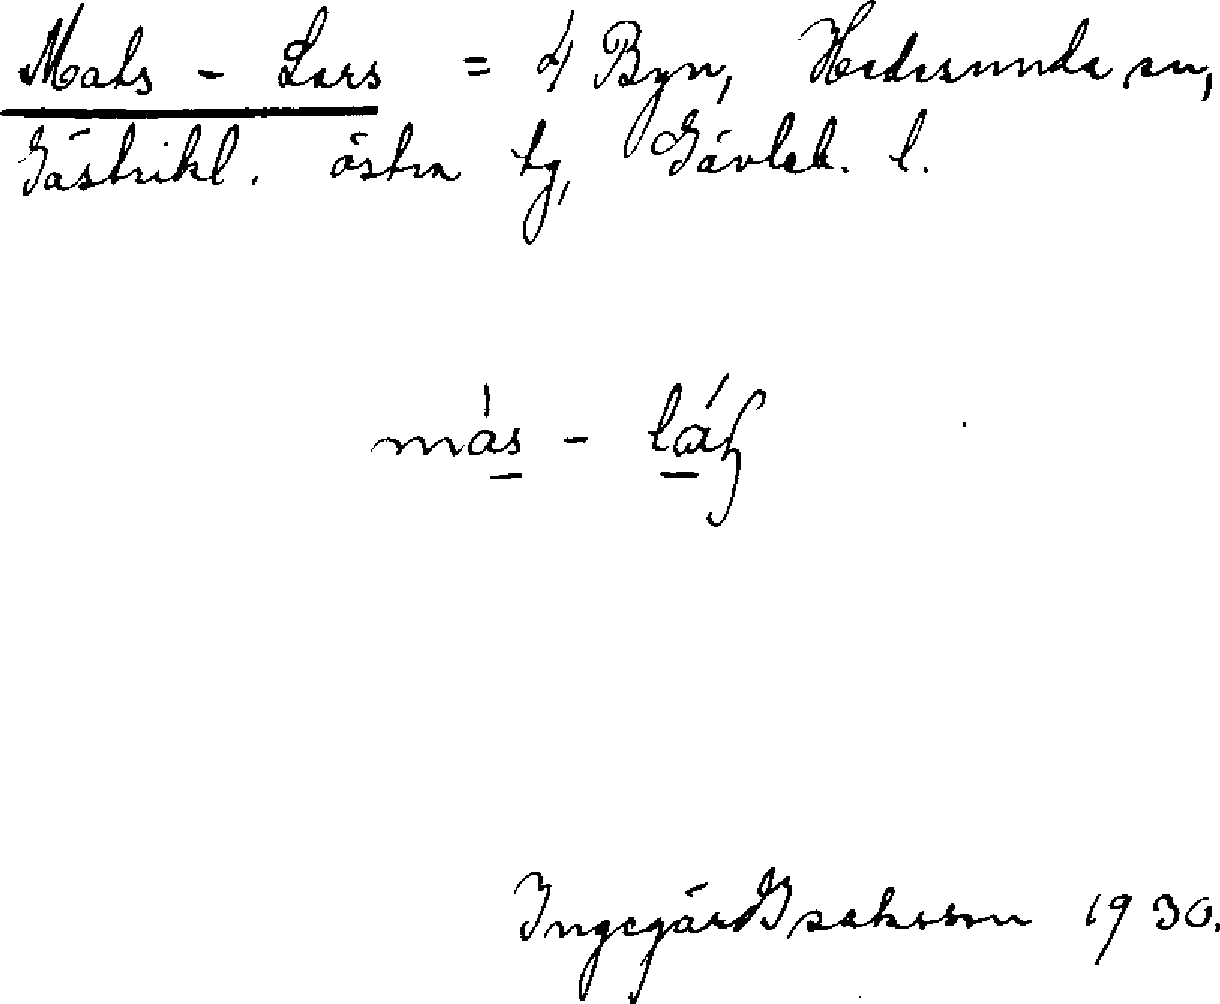 Mats - Lars = 4 Byn, Hedesunda sn,
Gästrikl. östra tg, Gävleb. l.
más - láʂ
Ingegärd Isaksson 1930.